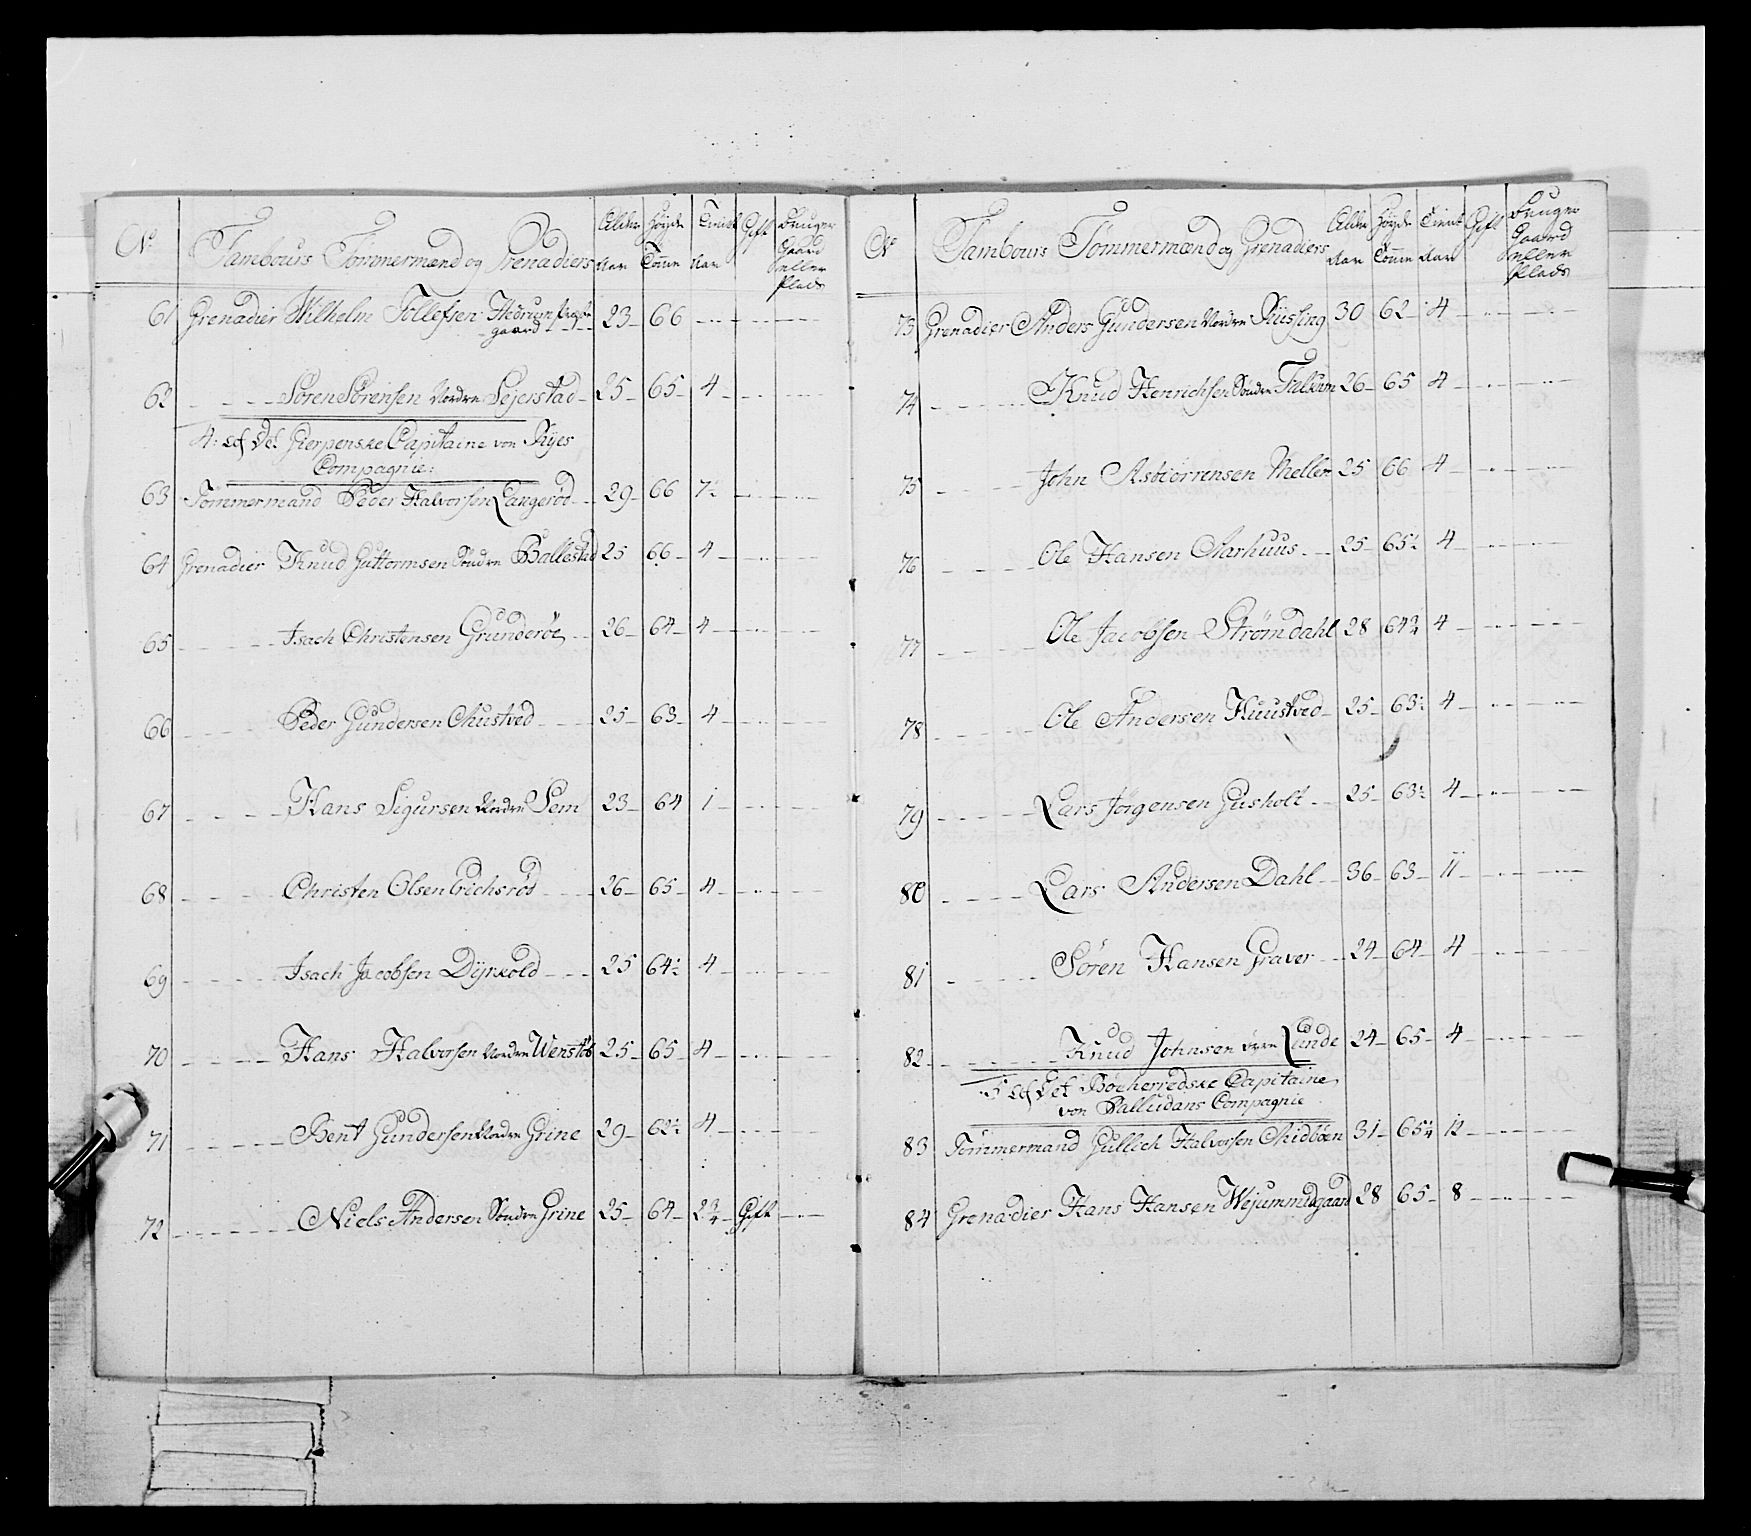 No Tambours Tømmermænd og Grenadiers Alder Aar Høyde Tomme Tient Aar Gift Bruger Gaard eller Plads
61 Grenadier Wilhelm Tollefsen Hedrum
gaard 23 66
62 Søren Sørensen Nordre Sejerstad 25 65 4
4: af Det Gierpenske Capitaine von Rÿes
Compagnie:
63 Tømmermand Peder Halvorsen Langerød 29 66 7½
64 Grenadier Knud Guttormsen Søndre Ballestad 25 66 4
65 Isach Christensen Grunderøe 26 64 4
66 Peder Gundersen 25 63 4
67 Hans Sigursen Nordre Sem 23 64 1
68 Christen Olsen Erichsrød 26 65 4
69 Isach Jacobsen Dÿrkold 25 64½ 4
70 Hans Halvorsen Nordre Wenstøb 25 65 4
71 Bent Gundersen Nordre Grine 29 62½ 4
72 Niels Andersen Søndre Grine 25 64 2¾ Gift
No Tambours Tømmermænd og Grenadiers Alder Aar Høyde Tomme Tient Aar Gift Bruger Gaard eller Plads
73 Grenadier Anders Gundersen Nordre 30 62 4
74 Knud Henrichsen Søndre Falkum 26 65 4
75 John Asbiörrensen Mellem 25 66 4
76 Ole Hansen Aarhuus 25 65½ 4
77 Ole Jacobsen Strømdahl 28 64¾ 4
78 Ole Andersen Huustved 25 63½ 4
79 Lars Jørgensen Gusholt 25 63½ 4
80 Lars Andersen Dahl 36 63 11
81 Søren Hansen Graver 24 64 4
82 Knud Johnsen øvre Lunde 24 65 4
5 af Det Böeherredske Capitaine
von Palludans Compagnie
83 Tømmermand Gullich Halvorsen Midbøen 31 65¼ 12
84 Grenadier Hans Hansen Wejummidgaard 28 65 8